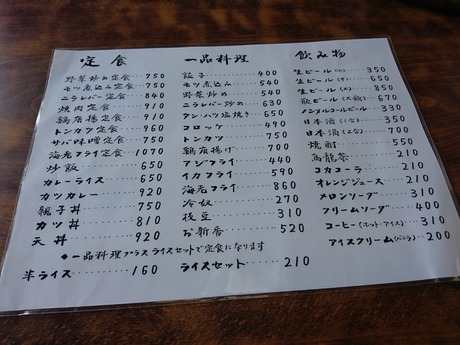 定食
野菜炒め定食 750
モツ煮込み定食 750
ニラレバー定食 840
焼肉定食 910
鶏唐揚定食 910
トンカツ定食 960
サバ味噌定食 750
海老フライ定食 1070
炒飯 650
カレーライス 650
カツカレー 920
親子丼 750
カツ丼 810
天丼 920
一品料理
餃子 400
モツ煮込み 540
野菜炒め 540
ニラレバー炒め 630
タン・ハツ塩焼き 650
コロッケ 490
トンカツ 750
鶏唐揚げ 700
アジフライ 440
イカフライ 590
海老フライ 860
冷奴 270
枝豆 310
お新香 520
飲み物
生ビール(小) 350
生ビール(中) 650
生ビール(大) 850
瓶ビール(大瓶) 670
ノンアルコールビール 330
日本酒(1合) 350
日本酒(2合) 700
焼酎 550
烏龍茶 210
コカコーラ 210
オレンジジュース 210
メロンソーダ 310
クリームソーダ 400
コーヒー(ホット・アイス) 310
アイスクリーム(バニラ) 200
●一品料理プラスライスセットで定食になります
半ライス 160
ライスセット 210